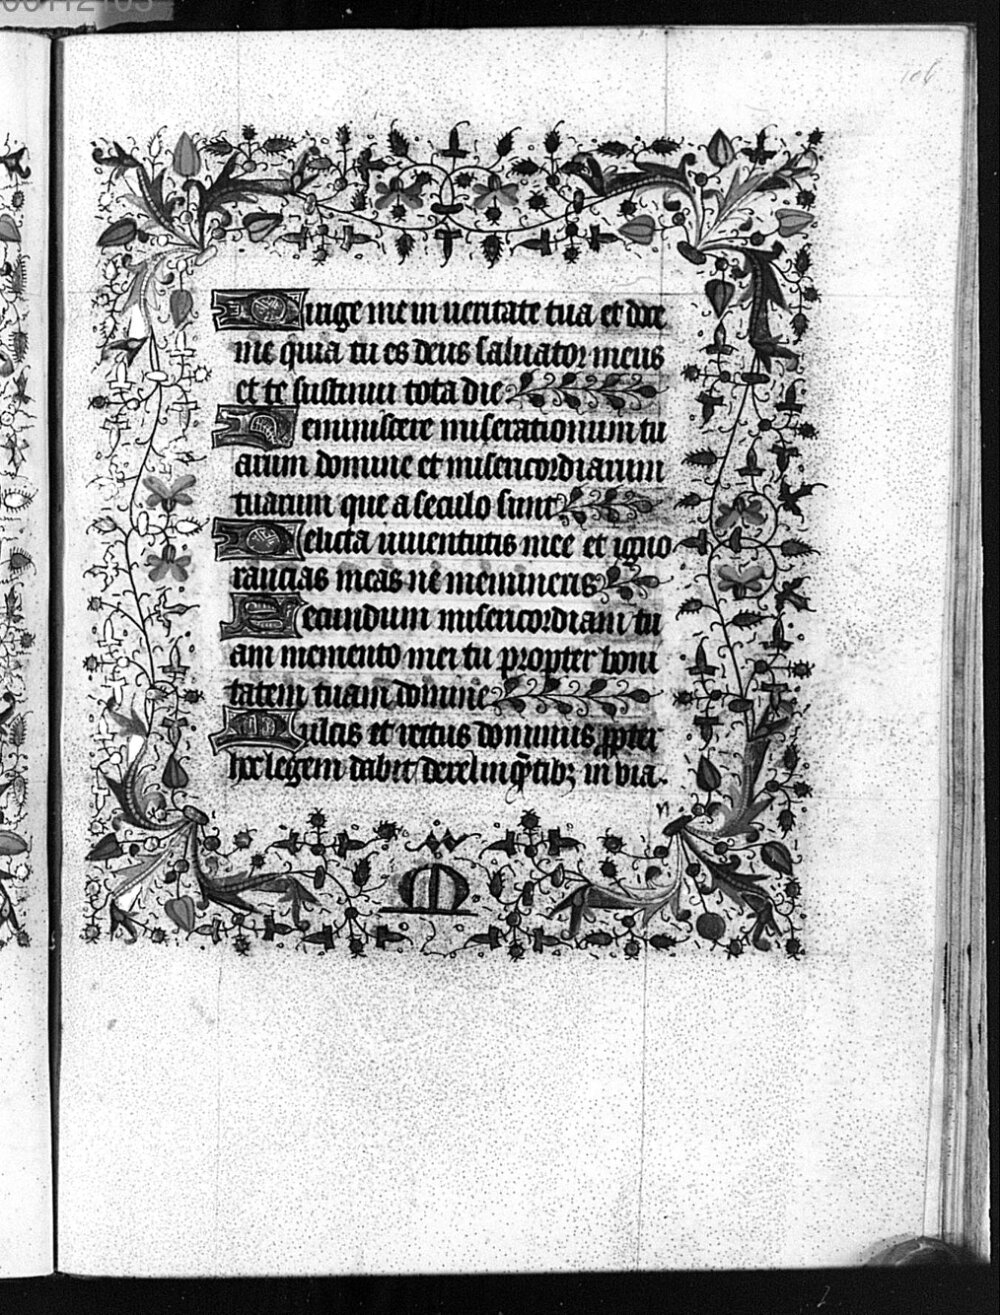 106
Dirige me in ueritate tua et doce
me quia tu es deus saluator meus
et te sustinui tota die
Reminiscere miserationum tu
arum domine et misericordiarum
tuarum que a seculo sunt
Delicta iuuentutis mee et igno
rancias meas ne memineris
Secundum misericordiam tu
am memento mei tu propter boni
tatem tuam domine
Dulcis et rectus dominus ꝓpter
hoc legem dabit derelinq̄tibꝫ in via.
n
M